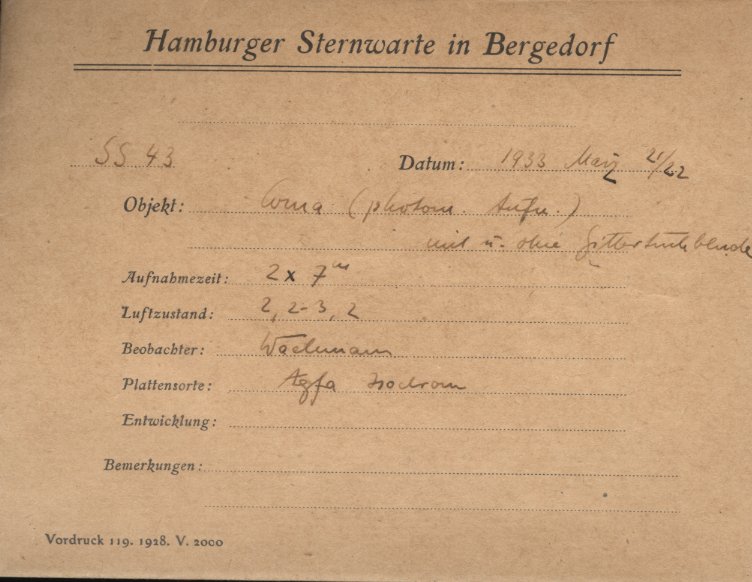 Hamburger Sternwarte in Bergedorf
SS 43 Datum: 1933 März 21/22
Objekt: Coma (photom. Aufn.)
mit u. ohne
Aufnahmezeit: 2 x 7 m
Luftzustand: 2, 2-3, 2
Beobachter: Wachmann
Plattensorte: Agfa Isochrom
Entwicklung:
Bemerkungen:
Vordruck 119. 1928. V. 2000